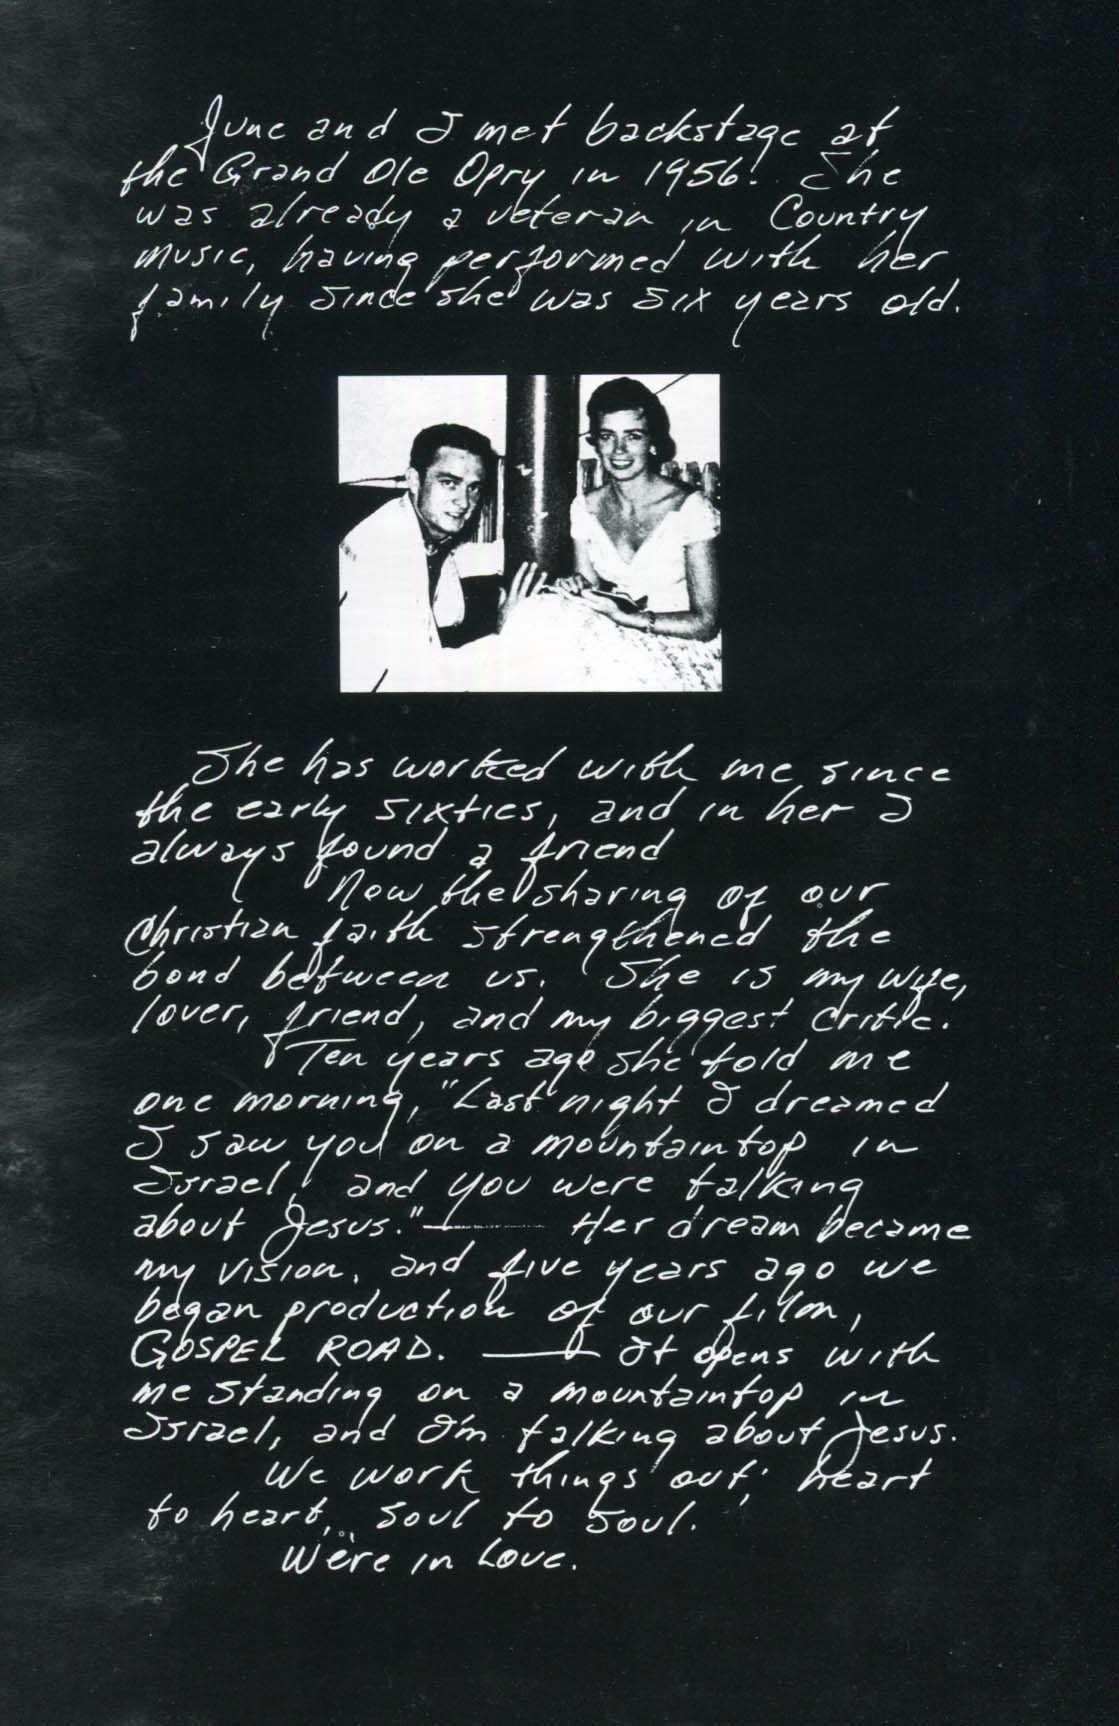 June and I met backstage at
the Grand Ole Opry in 1956. She
was already a veteran in Country
music, having performed with her
family since she was six years old.
She has worked with me since
the early sixties, and in her I
always found a friend
Now the sharing of our
Christian faith strengthened the
bond between us. She is my wife,
lover, friend, and my biggest critic.
Ten years ago she told me
one morning, "Last night I dreamed
I saw you on a mountaintop in
Israel, and you were talking
about Jesus." — Her dream became
my vision, and five years ago we
began production of our film,
GOSPEL ROAD. — It opens with
me standing on a mountaintop in
Israel, and I'm talking about Jesus.
We work things out; heart
to heart, soul to soul.
We're in Love.